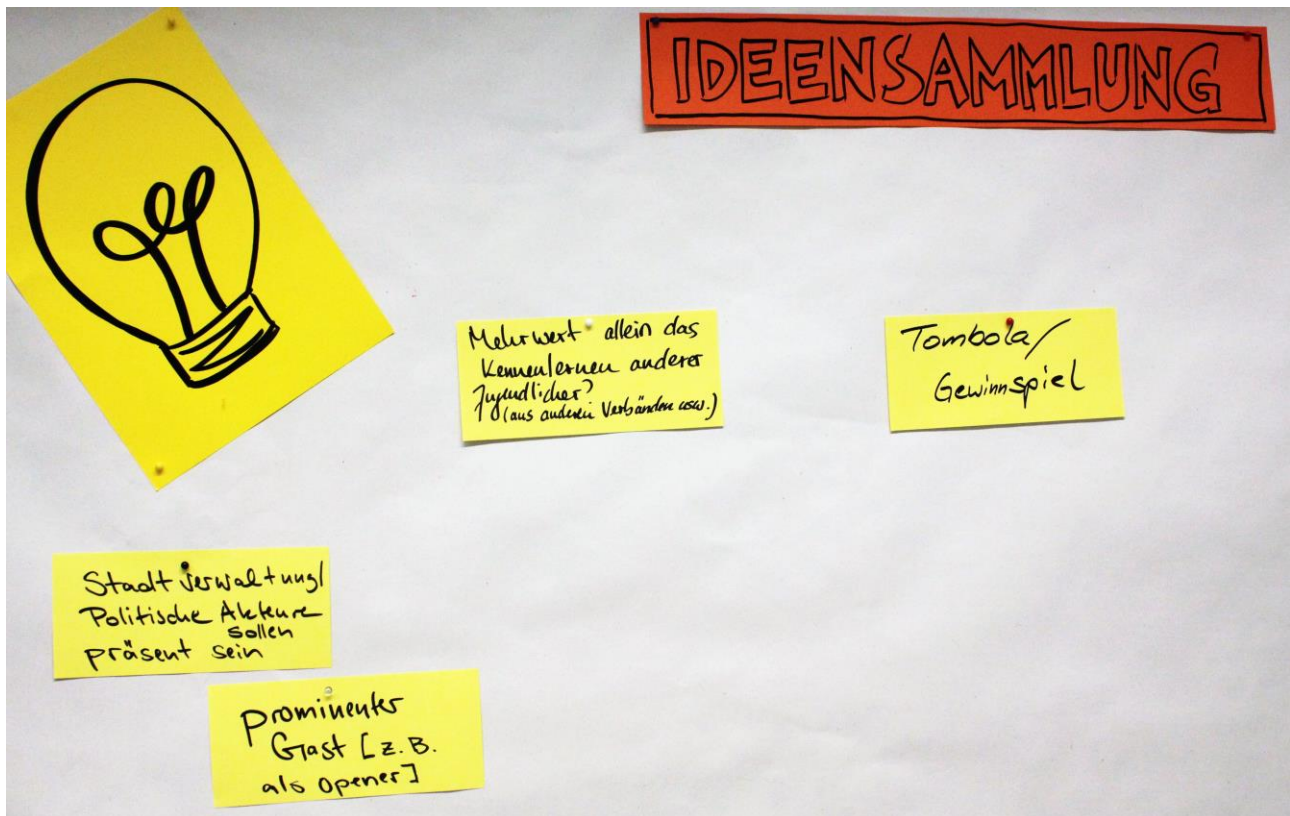 IDEENSAMMLUNG
Mehrwert allein das
Kennenlernen anderer
Jugendlicher?
(aus anderen Verbänden usw.)
Tombola/
Gewinnspiel
Stadtverwaltung/
Politische Akteure
sollen
präsent sein
prominenter
Gast [z.B.
als Opener]